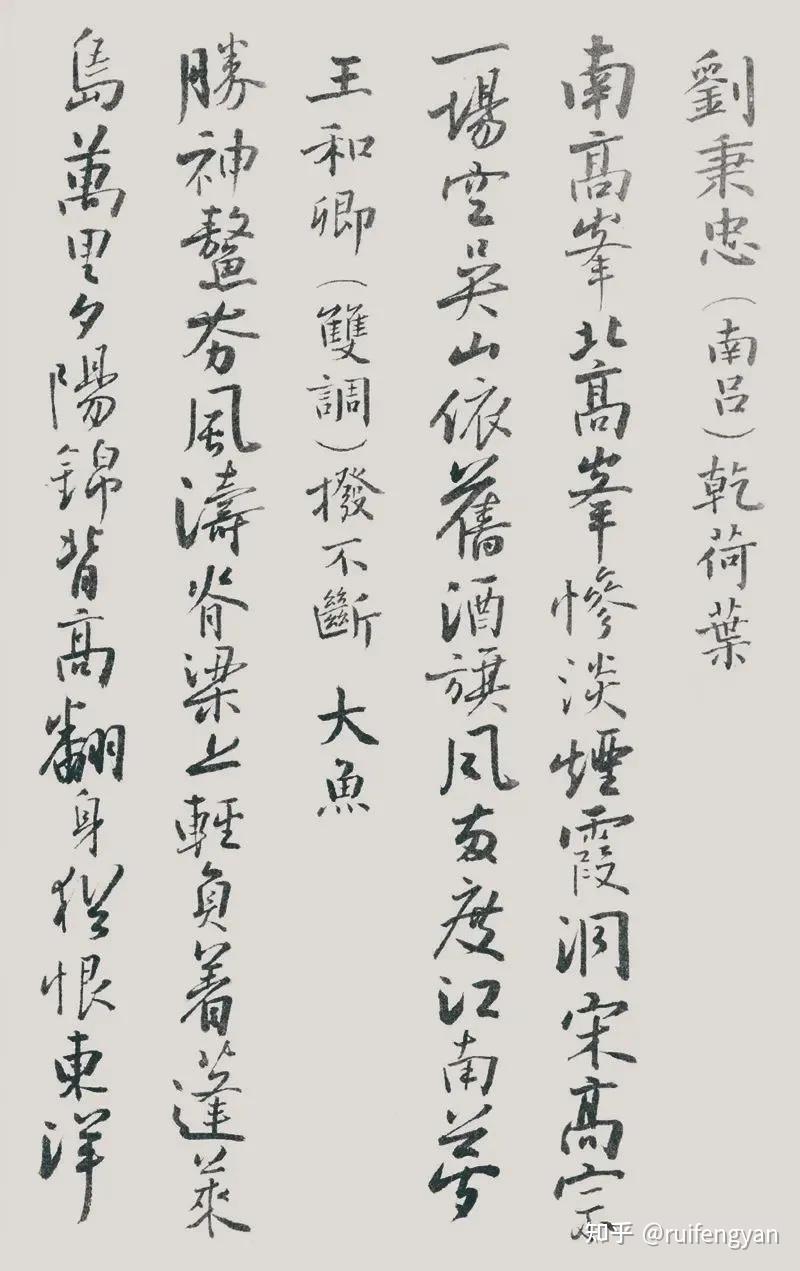 劉秉忠（南呂）乾荷葉
南高峯北高峯慘淡煙霞洞宋高宗
一場空吳山依舊酒旗風兩度江南夢
王和卿（雙調）撥不斷 大魚
勝神鰲夯風濤脊梁上輕負着蓬萊
島萬里夕陽錦背高翻身猶恨東洋
知乎 @ruifengyan